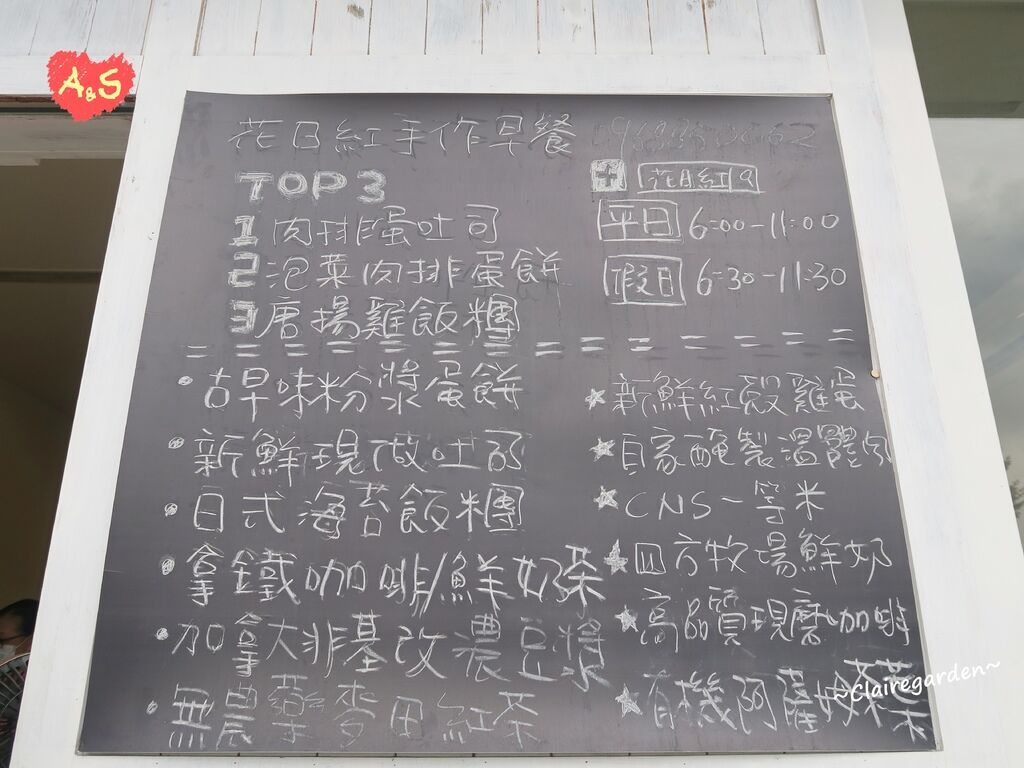 A&S
花日紅手作早餐
TOP 3
1 肉排蛋吐司
2 泡菜肉排蛋餅
3 唐揚雞飯糰
花日紅
平日 6:00-11:00
假日 6:30-11:30
古早味粉漿蛋餅
新鮮現做吐司
日式海苔飯糰
拿鐵咖啡/鮮奶茶
加拿大非基改濃豆漿
無農藥麥田紅茶
★新鮮紅殼雞蛋
★自家醃製溫體肉
★CNS一等米
★四方牧場鮮奶
★高品質現磨咖啡
★有機阿薩姆茶葉
~Clairegarden~